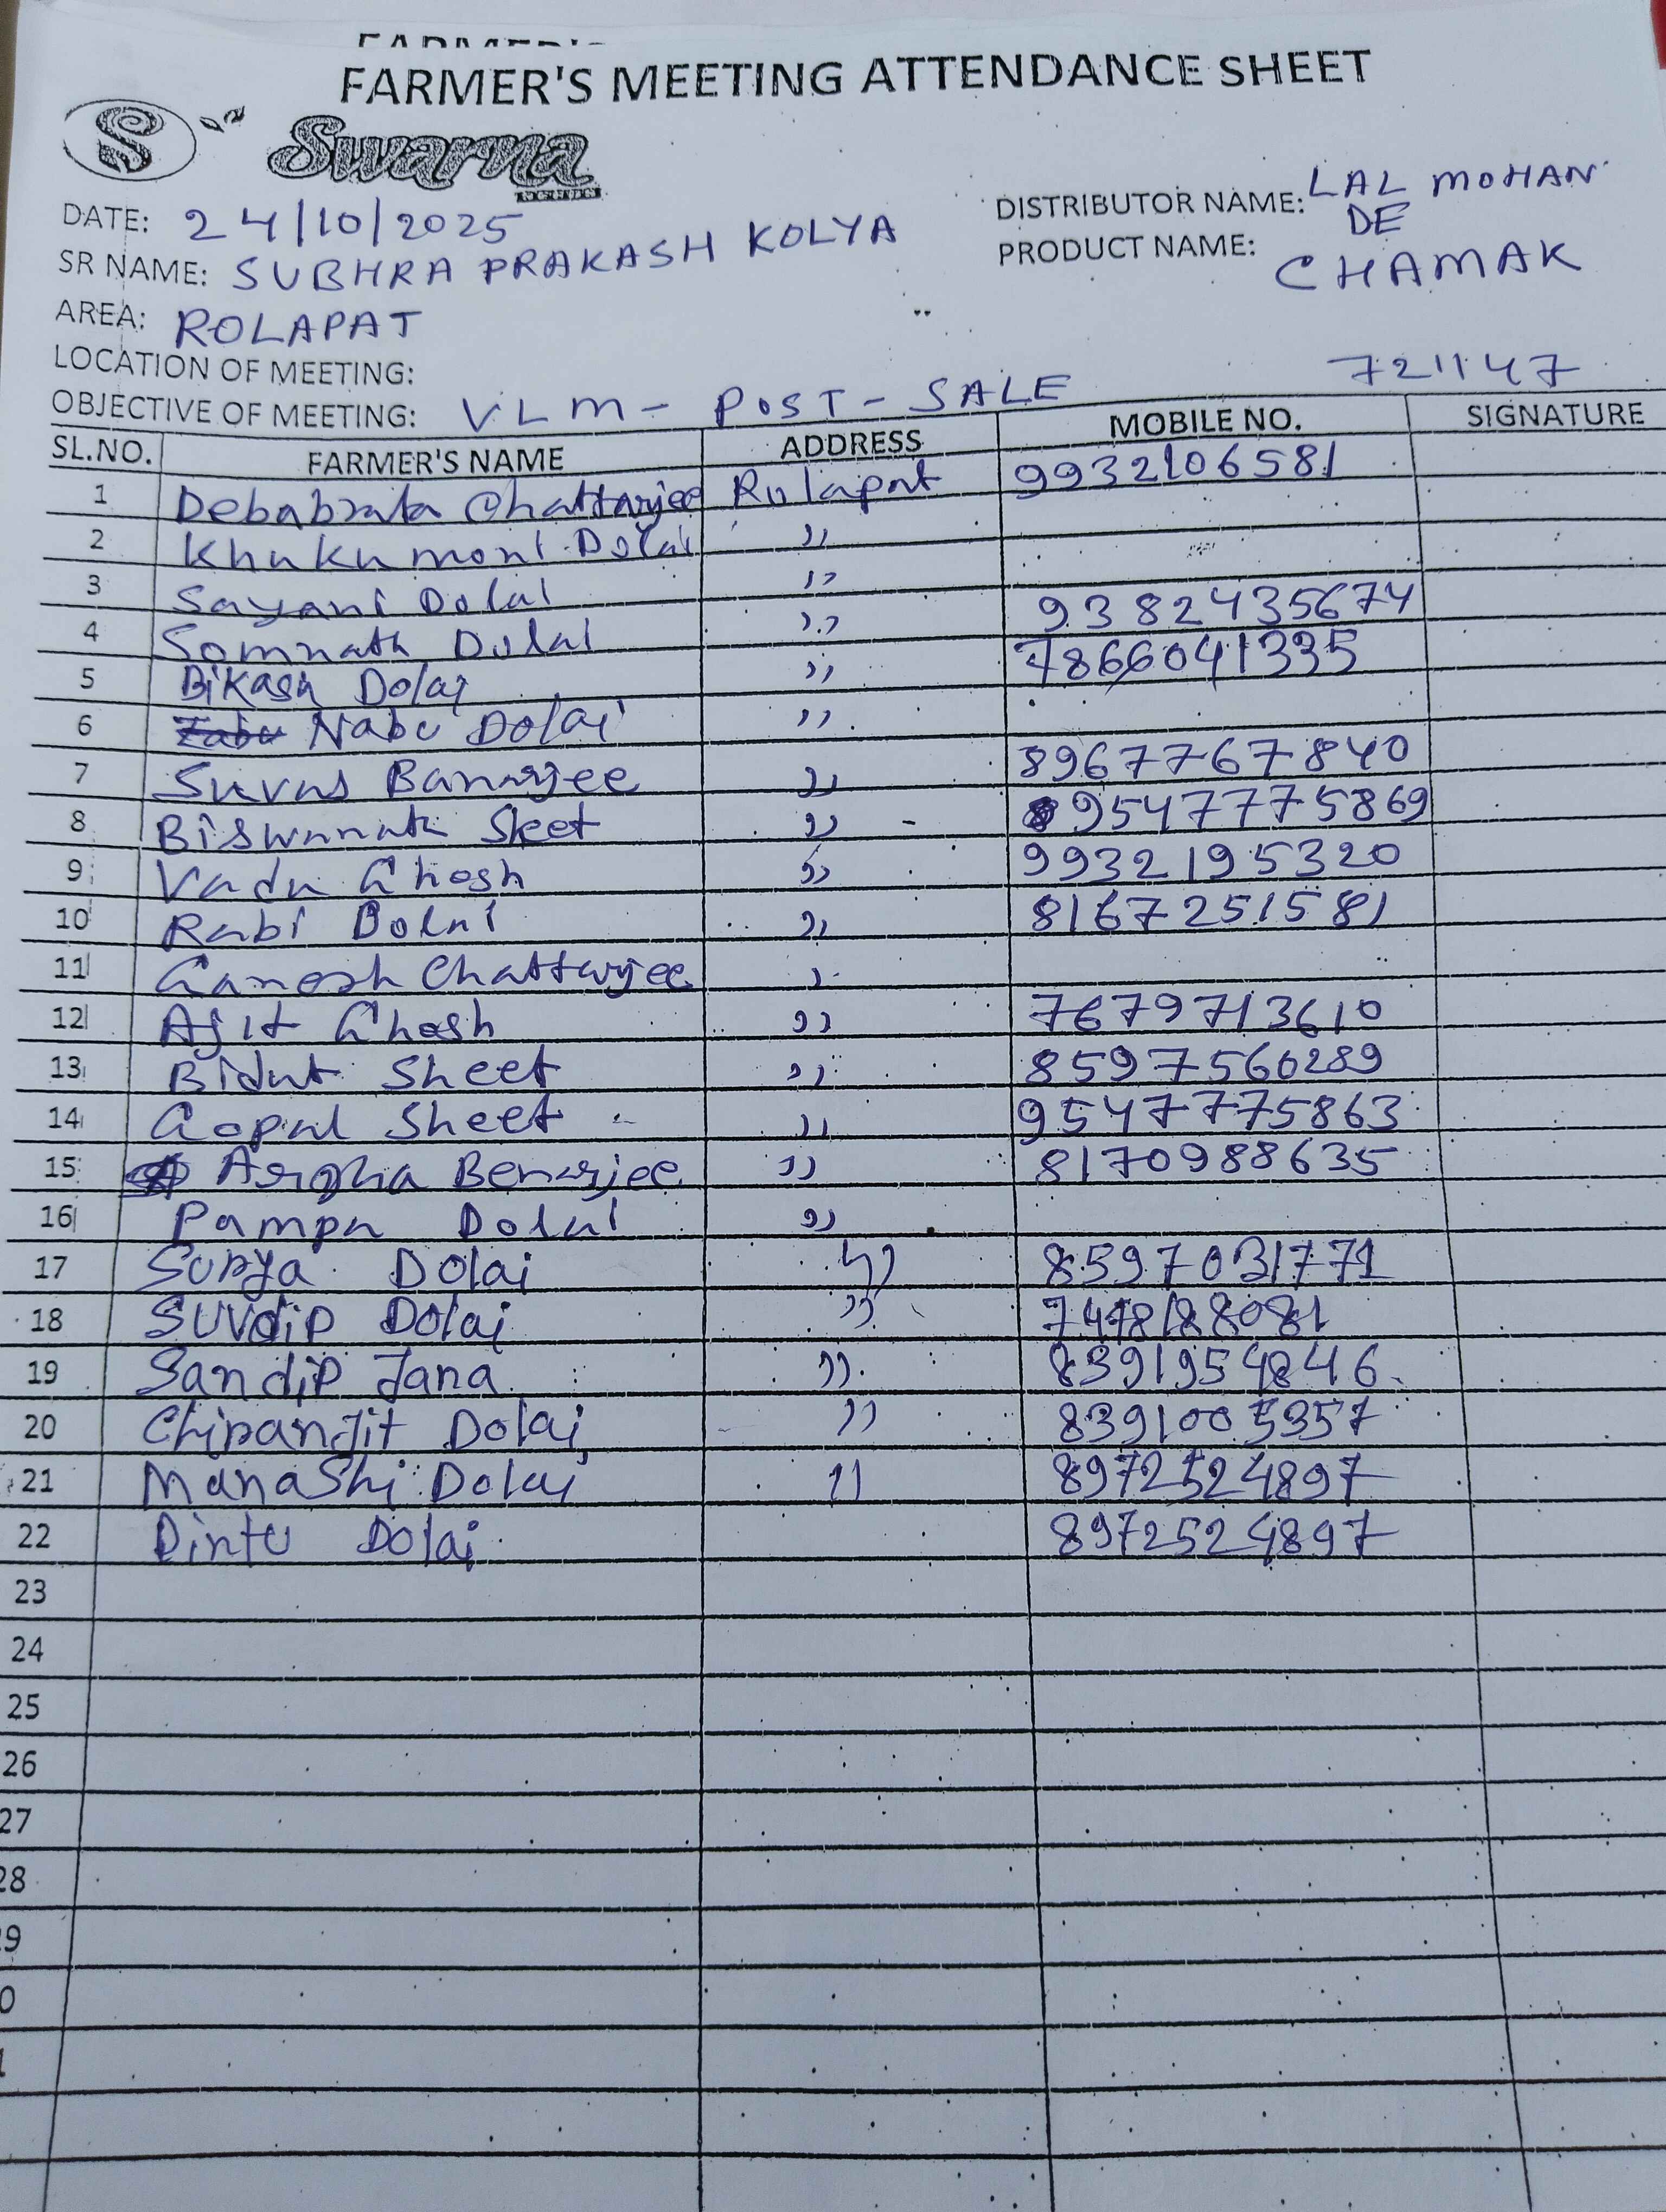 FARMER'S MEETING ATTENDANCE SHEET
S Swarna
DATE: 24/10/2025
DISTRIBUTOR NAME: LAL MOHAN DE
SR NAME: SUBHRA PRAKASH KOLYA
PRODUCT NAME: CHAMAK
AREA: ROLAPAT
LOCATION OF MEETING:
721147
OBJECTIVE OF MEETING: VLM - POST - SALE
SL.NO. FARMER'S NAME ADDRESS MOBILE NO. SIGNATURE
1 Debabrata Chattarjee Rolapat 9932106581
2 Khukumoni Dolai ,,
3 Sayani Dolai ,,
4 Somnath Dolai ,, 9382435674
5 Bikash Dolai ,, 7866041335
6 Nabu Dolai ,,
7 Suvas Banarjee ,, 8967767840
8 Biswanath Sheet ,, 9547775869
9 Vadu Ghosh ,, 9932195320
10 Rabi Dolai ,, 8167251581
11 Ganesh Chatterjee ,,
12 Ajit Ghosh ,, 7679713610
13 Bidut Sheet ,, 8597560289
14 Gopal Sheet ,, 9547775863
15 Argha Benarjee ,, 8170988635
16 Pampa Dolai ,,
17 Surya Dolai ,, 8597031771
18 SUVdip Dolai ,, 7478188081
19 Sandip Jana ,, 8391954846
20 Chiranjit Dolai ,, 8391005357
21 ManaShi Dolai ,, 8972524897
22 Dolai 8972524897
23
24
25
26
27
28